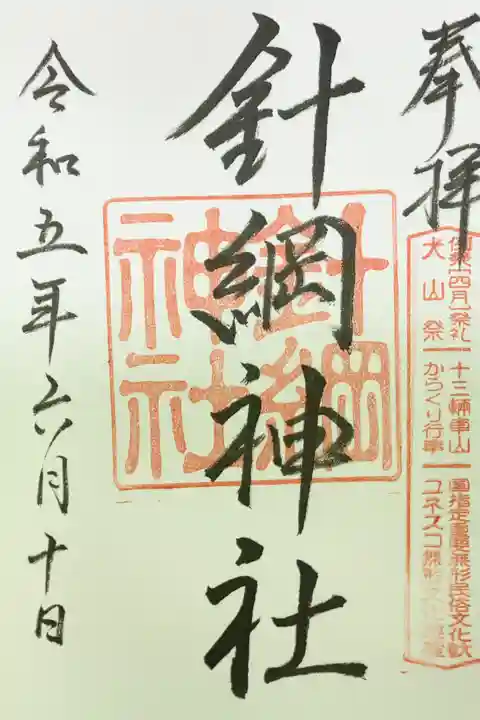 奉拝
例祭(四月)祭礼 十三輌車山 国指定重要無形民俗文化財
犬山祭 からくり行事 ユネスコ無形文化遺産
針綱神社
針綱
神社
令和五年六月十日